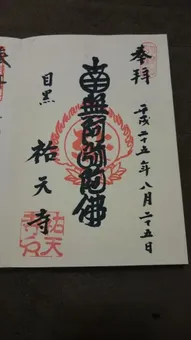 奉拝
平成二十五年八月二十五日
南無阿弥陀佛
目黒
祐天寺